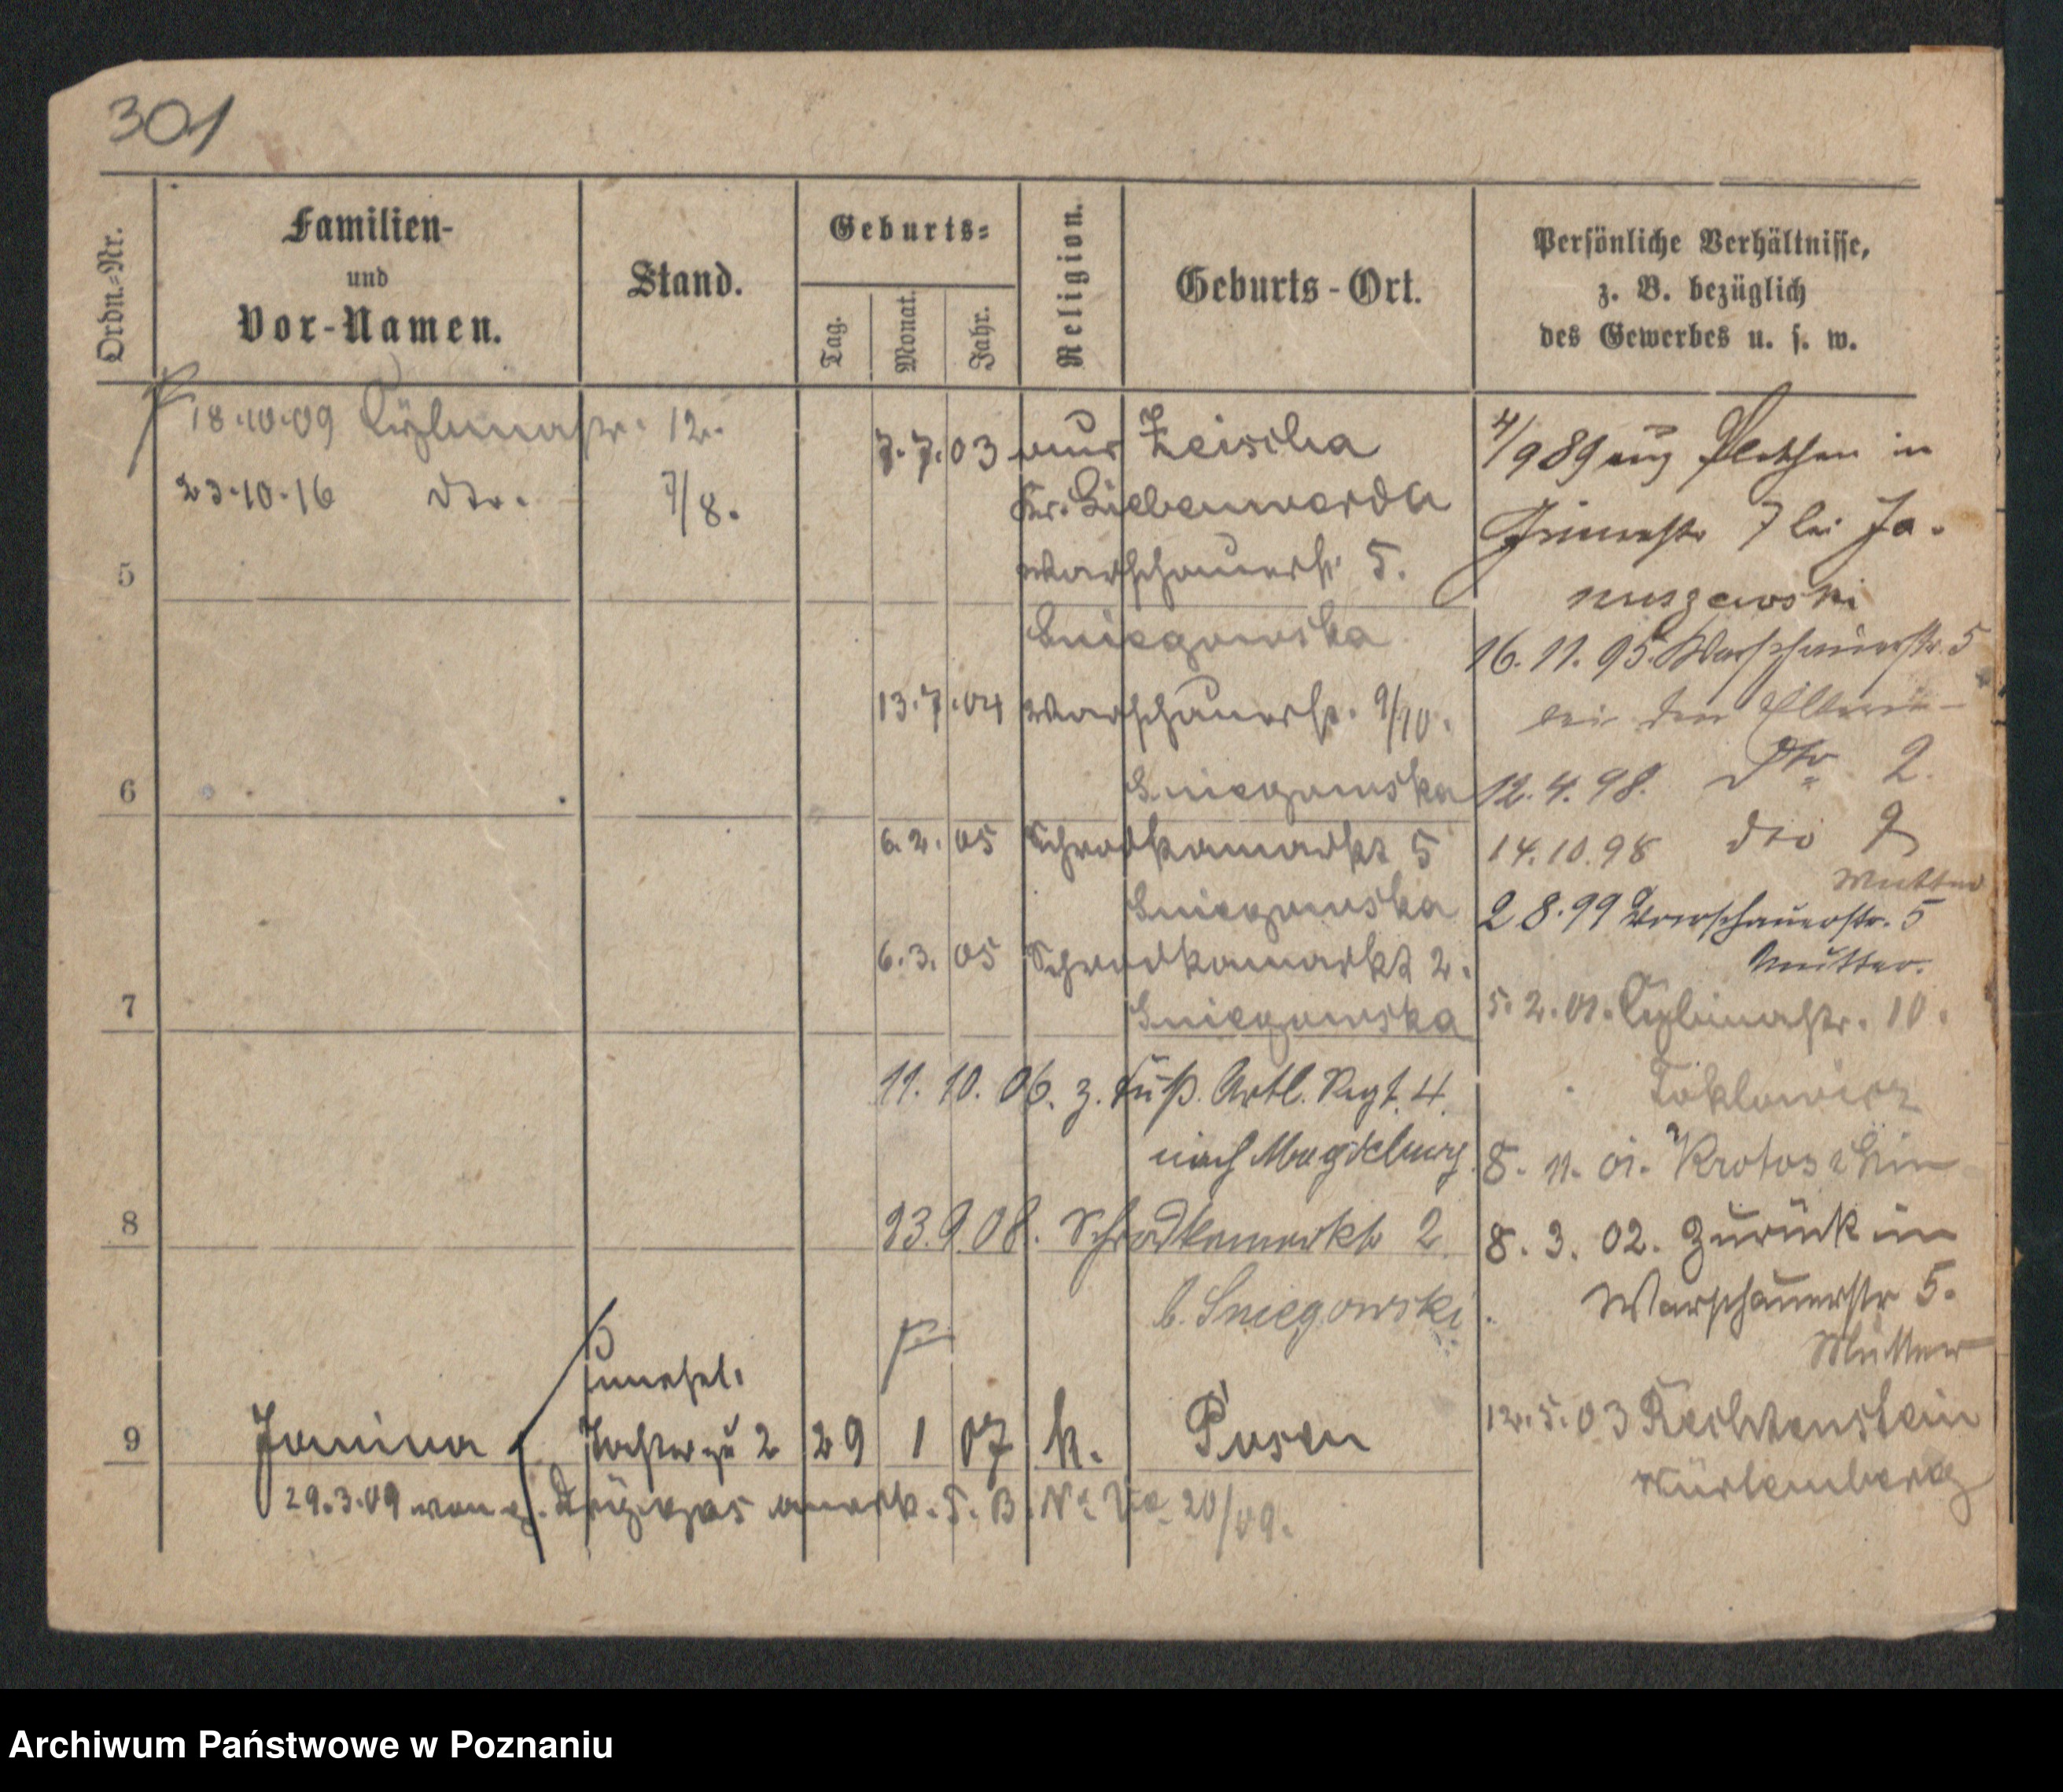 301
Ordn.-Nr.
Familien-
und
Vor-Namen.
Stand.
Geburts-
Tag.
Monat.
Jahr.
Religion.
Geburts-Ort.
Persönliche Verhältnisse,
z. B. bezüglich
des Gewerbes u. s. w.
18.10.09 Cybinastr. 12.
23.10.16 dto. 7/8.
5
6
7
8
7.7.03 aus Zeischa
Kr. Liebenwerda
Warschauerstr. 5.
Sniegowska
13.7.04 Warschauerstr. 9/10.
Sniegowska
6.2.05 Schrodkamarkt 5
Sniegowska
6.3.05 Schrodkamarkt 2.
Sniegowska
11.10.06. z. Fuß. Artl. Regt. 4.
nach Magdeburg.
23.9.08. Schrodkamarkt 2.
b. Sniegowski
unehel.
9 Janina Tochter zu 2 29 1 07 k. Posen
29.3.09 von anerk. S. B. No 20/09.
4/989 aus Plethen in
7 bei Ja-
nuszewski
16.11.95. Warschauerstr. 5
bei den Eltern
12.4.98. dto 2.
14.10.98 dto 9
Mutter
2 8.99 Warschauerstr. 5
Mutter.
5.2.01. Cybinastr. 10.
8.11.01. Krotoschin
8.3.02. Zurück in
Warschauerstr 5.
Mutter
12.5.03 Rechtenstein
Würtemberg
Archiwum Państwowe w Poznaniu